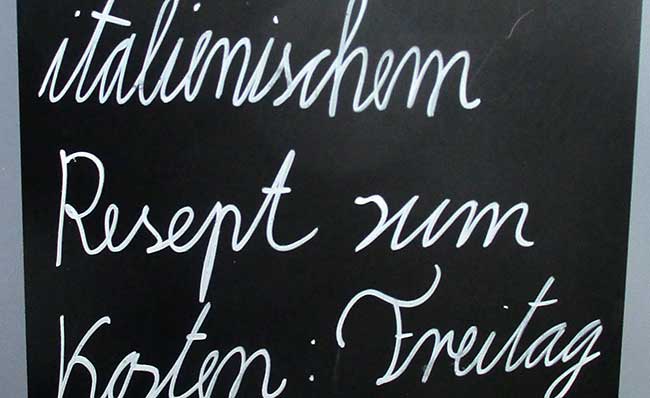 italienischem
Resept zum
Kosten: Freitag